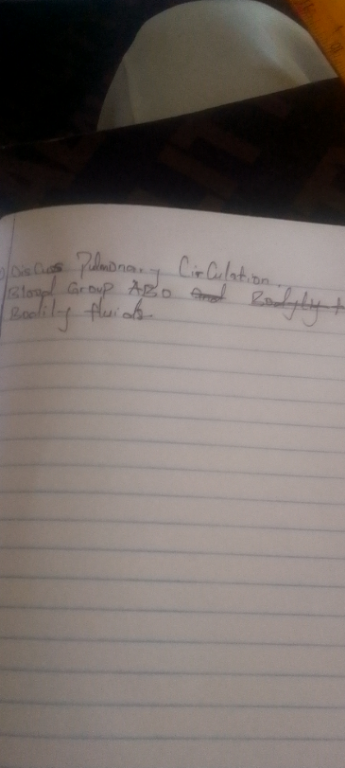 Discuss Pulmonary Circulation.
Blood Group ABO and Bodyly
Bodily fluids.